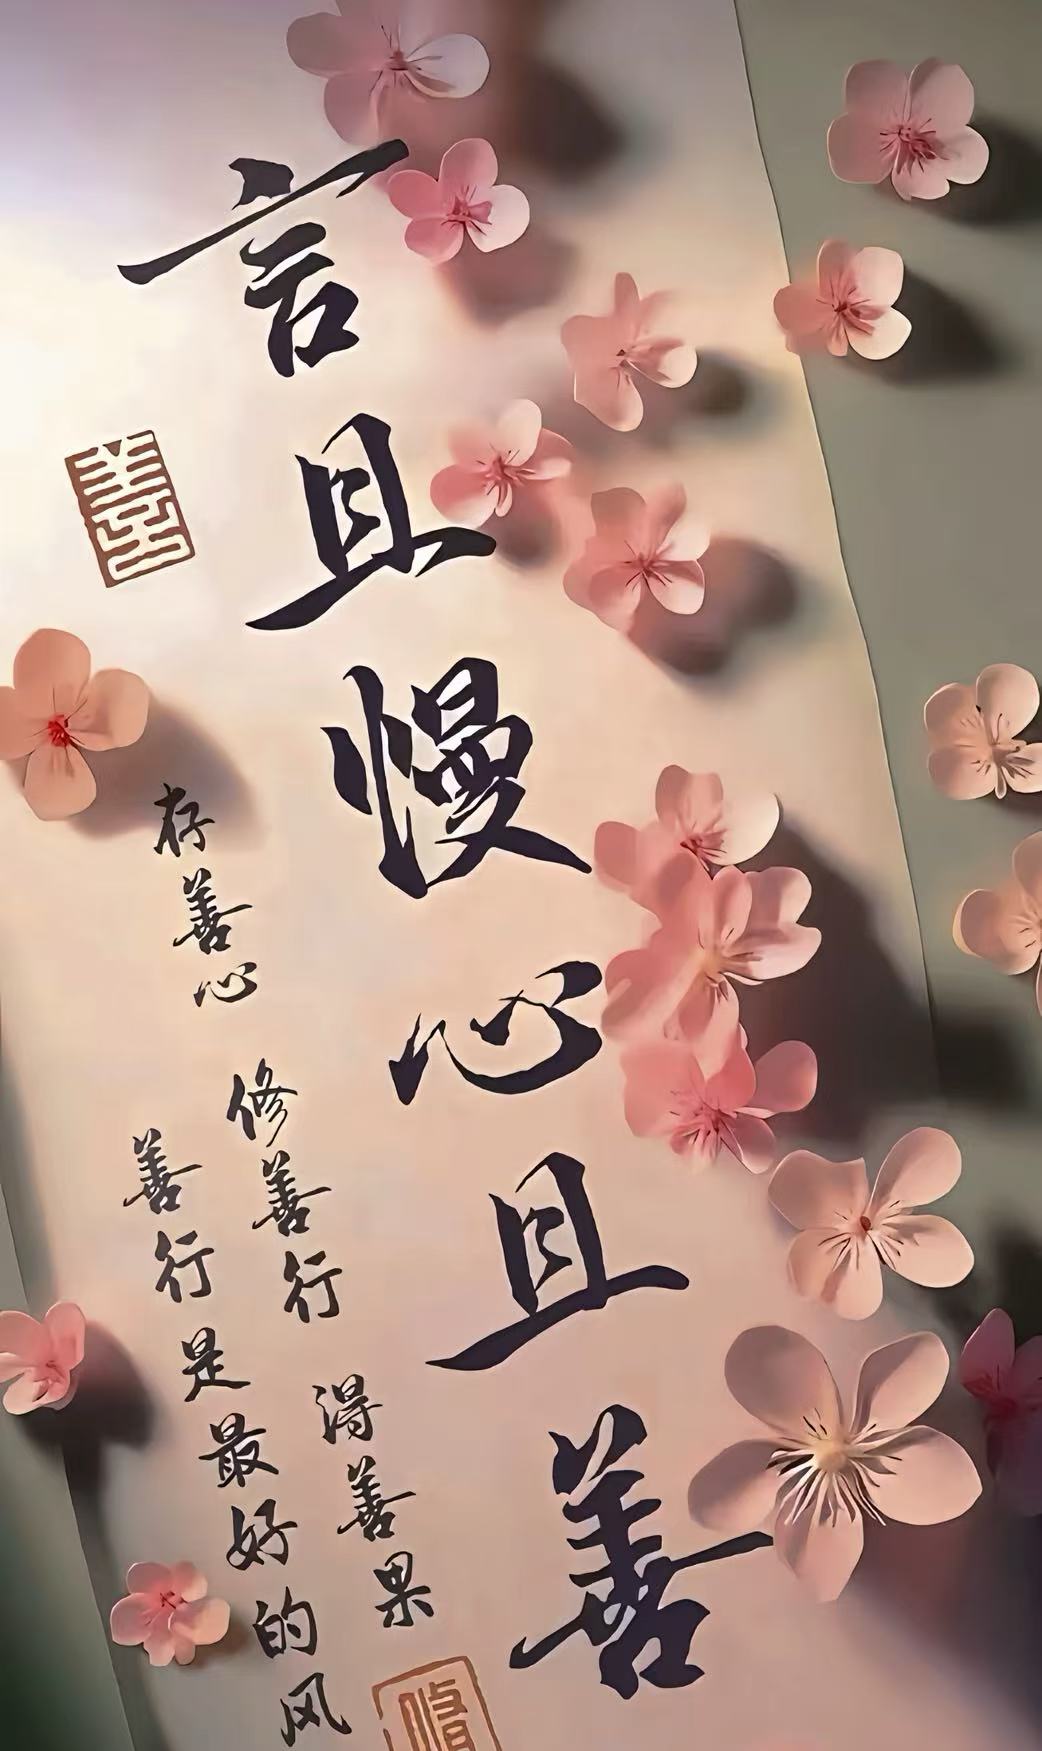 言且慢心且善
存善心 修善行 得善果
善行是最好的风
善